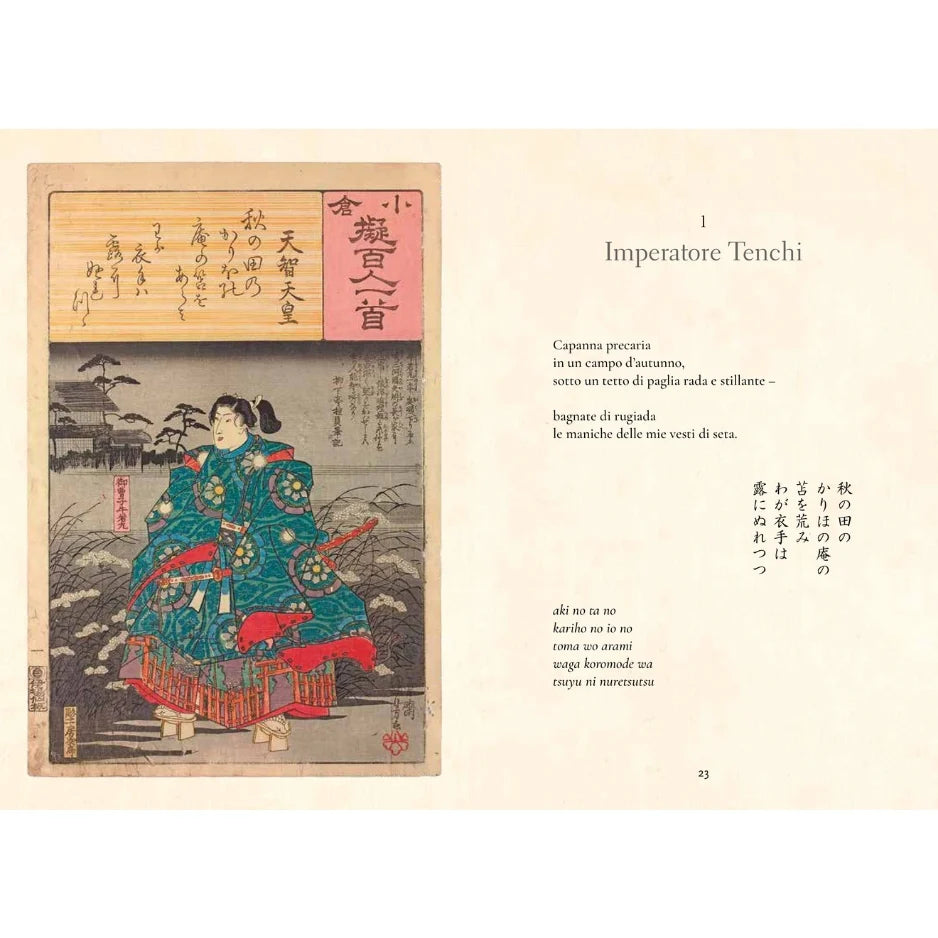 小倉
擬百人一首
天智天皇
秋の田の
かりほの
庵の苫を
あらみ
わが
衣手は
露に
ぬれ
つゝ
御曹子牛若丸
一
1
Imperatore Tenchi
Capanna precaria
in un campo d’autunno,
sotto un tetto di paglia rada e stillante –
bagnate di rugiada
le maniche delle mie vesti di seta.
秋の田の
かりほの庵の
苫を荒み
わが衣手は
露にぬれつつ
aki no ta no
kariho no io no
toma wo arami
waga koromode wa
tsuyu ni nuretsutsu
23